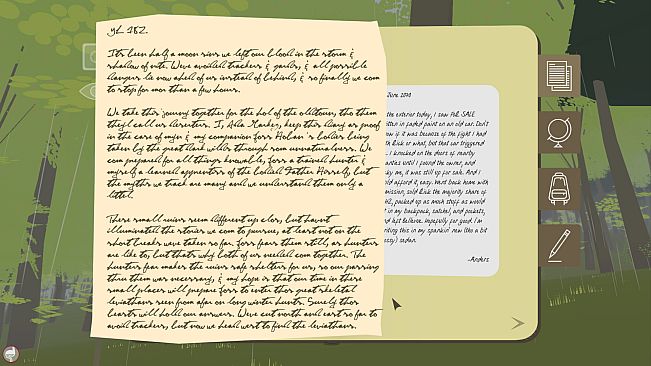 yL 182.
Its been half a moon sins we left our block in the storm &
shadow of nite. Weve avoided trackers & pauls, & all possible
dangurs lie now ahed of us insted of behind, & so finally we com
to stop for mor than a few hours.
We take this journey together for the hol of the olltown, tho them
they call us deserters. I, Adla Harkey, keep this diary as proof
in the case of myn & my companion Forss Holan's bodies being
taken by the great dark wilds through som unnaturalness. We
com prepared for all things knowable, forss a traind hunter &
myself a learned apprentors of the loded Father Horsely, but
the myths we track are many and we understand them only a
littel.
These small ruins seem different up clos, but havnt
illuminated the stories we com to pursue, at least not on the
short breaks weve taken so far. Forss fears them still, as hunters
are like to, but thats why both of us needed com together. The
hunters fear makes the ruins safe shelters for us, so our passing
thru them was necessary, & my hope is that our time in these
small places will prepare forss to enter thos great skeletal
leviathans seen from afar on long winter hunts. Surely thos
hearts will hold our answers. Weve cut north and east so far to
avoid trackers, but now we head west to find the leviathans.
June 2010
the exterior today, I saw FOR SALE
itten in faded paint on an old car. Don't
ow if it was because of the fight I had
th Rick or what, but that car triggered
. I knocked on the doors of nearby
anties until I found the owner, and
cky me, it was still up for sale. And I
uld afford it, easy. hard back home with
mission, sold Rick the majority share of
packed up as much stuff as would
t in my backpack, satchel, and pockets,
nd left believe. hopefully for good. I'm
riting this in my spankin' new (like a bit
ssy) sedan.
-Anders